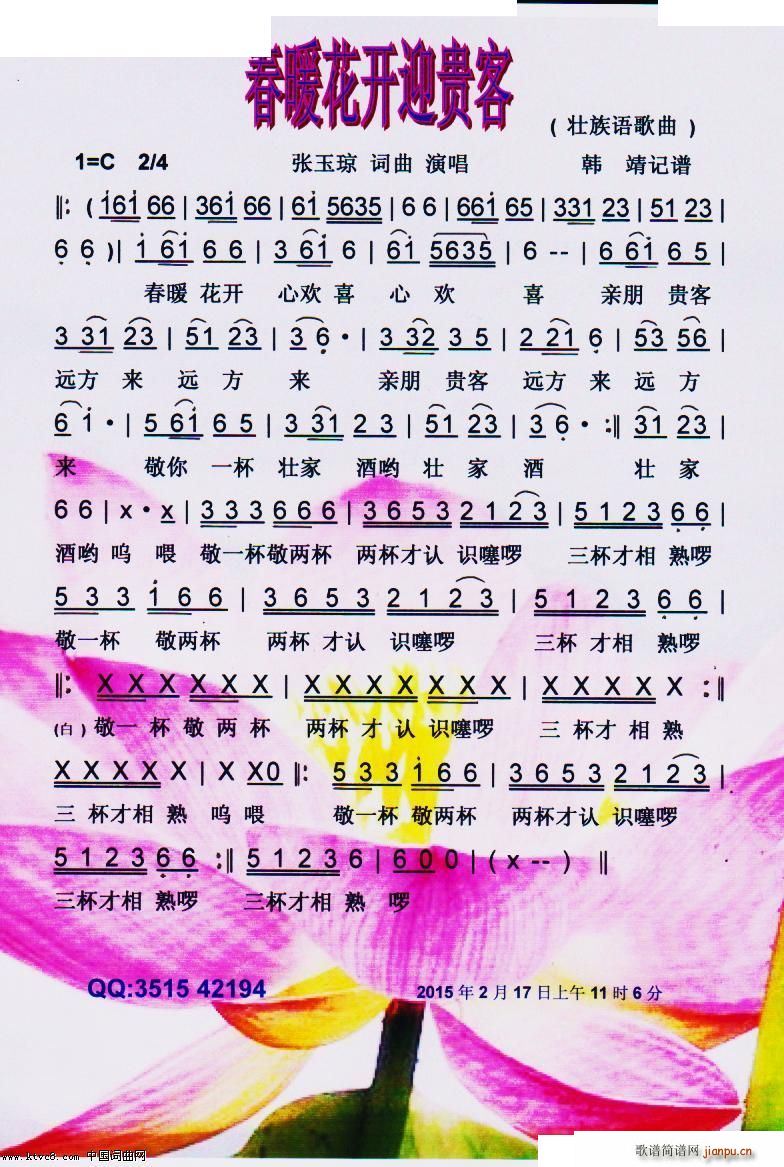 春暖花开迎贵客
( 壮族语歌曲 )
1=C 2/4 张玉琼 词曲 演唱 韩 靖记谱
‖: ( 161 66 | 361 66 | 61 5635 | 6 6 | 661 65 | 331 23 | 51 23 |
6 6 ) | 1 61 6 6 | 3 61 6 | 61 5635 | 6 -- | 6 61 6 5 |
春暖 花开 心欢 喜 心 欢 喜 亲朋 贵客
3 31 23 | 51 23 | 3 6 · | 3 32 3 5 | 2 21 6 | 53 56 |
远方 来 远 方 来 亲朋 贵客 远方 来 远 方
6 1 · | 5 61 6 5 | 3 31 2 3 | 51 23 | 3 6 · :‖ 31 23 |
来 敬你 一杯 壮家 酒哟 壮 家 酒 壮 家
6 6 | x · x | 3 3 3 6 6 6 | 3 6 5 3 2 1 2 3 | 5 1 2 3 6 6 |
酒哟 呜 喂 敬一杯敬两杯 两杯才认 识噻啰 三杯才相 熟啰
5 3 3 1 6 6 | 3 6 5 3 2 1 2 3 | 5 1 2 3 6 6 |
敬一杯 敬两杯 两杯 才认 识噻啰 三杯 才相 熟啰
‖: X X X X X X | X X X X X X X | X X X X X :‖
(白) 敬一 杯 敬 两 杯 两杯 才 认 识噻啰 三 杯才 相 熟
X X X X X | X X0 ‖: 5 3 3 1 6 6 | 3 6 5 3 2 1 2 3 |
三 杯才相 熟 呜 喂 敬一杯 敬两杯 两杯才认 识噻啰
5 1 2 3 6 6 :‖ 5 1 2 3 6 | 6 0 0 | ( x -- ) ‖
三杯才相 熟啰 三杯才相 熟 啰
QQ:3515 42194 2015 年 2 月 17 日上午 11 时 6 分
www.ktvc8.com 中国词曲网
歌谱简谱网
jianpu.cn